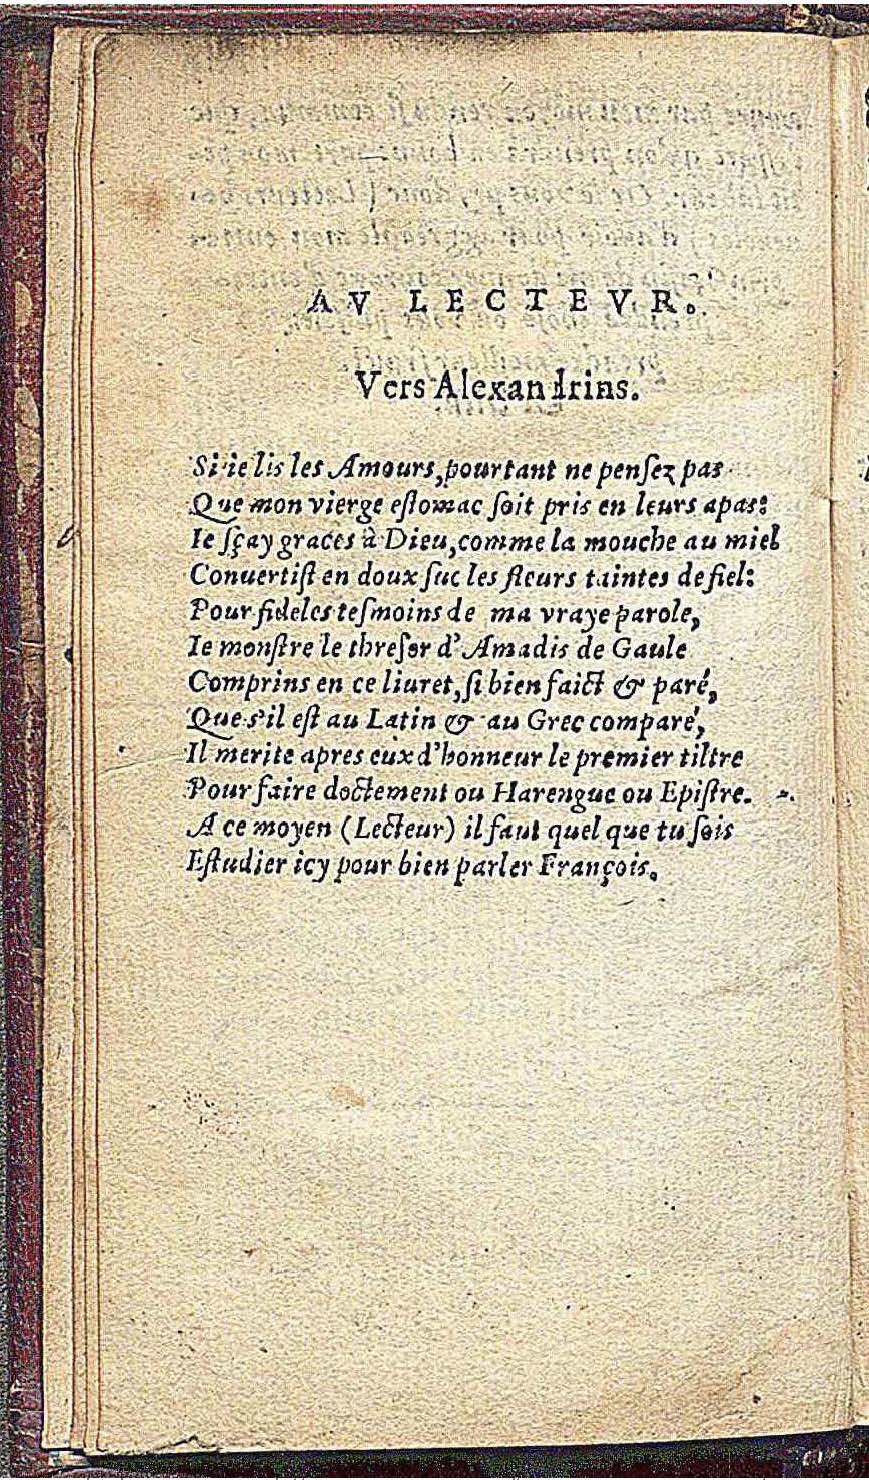 AV LECTEVR.
Vers Alexandrins.
Si ie lis les Amours, pourtant ne penſez pas
Que mon vierge eſtomac ſoit pris en leurs apas:
Ie ſçay graces à Dieu, comme la mouche au miel
Conuertiſt en doux ſuc les fleurs taintes de fiel:
Pour fideles teſmoins de ma vraye parole,
Ie monſtre le threſor d'Amadis de Gaule
Comprins en ce liuret, ſi bien faict & paré,
Que s'il eſt au Latin & au Grec comparé,
Il merite apres eux d'honneur le premier tiltre
Pour faire doctement ou Harengue ou Epiſtre.
A ce moyen (Lecteur) il faut quel que tu ſois
Eſtudier icy pour bien parler François.